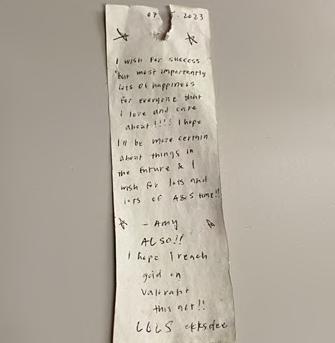 07 2023
I wish for success
but most importantly
lots of happiness
for everyone that
i love and care
about !!!! I hope
I'll be more certain
about things in
the future & I
wish for lots and
lots of A&S time!!
- Amy
ALSO!!
I hope I reach
gold on
Valorant
this act!!